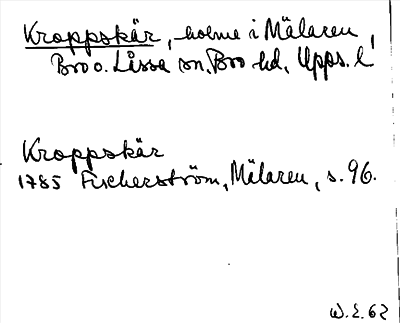 Kroppskär, holme i Mälaren,
Bro o. Låssa sn, Bro hd, Upps. l.
Kroppskär
1785 Fischerström, Mälaren, s. 96.
W.E. 62